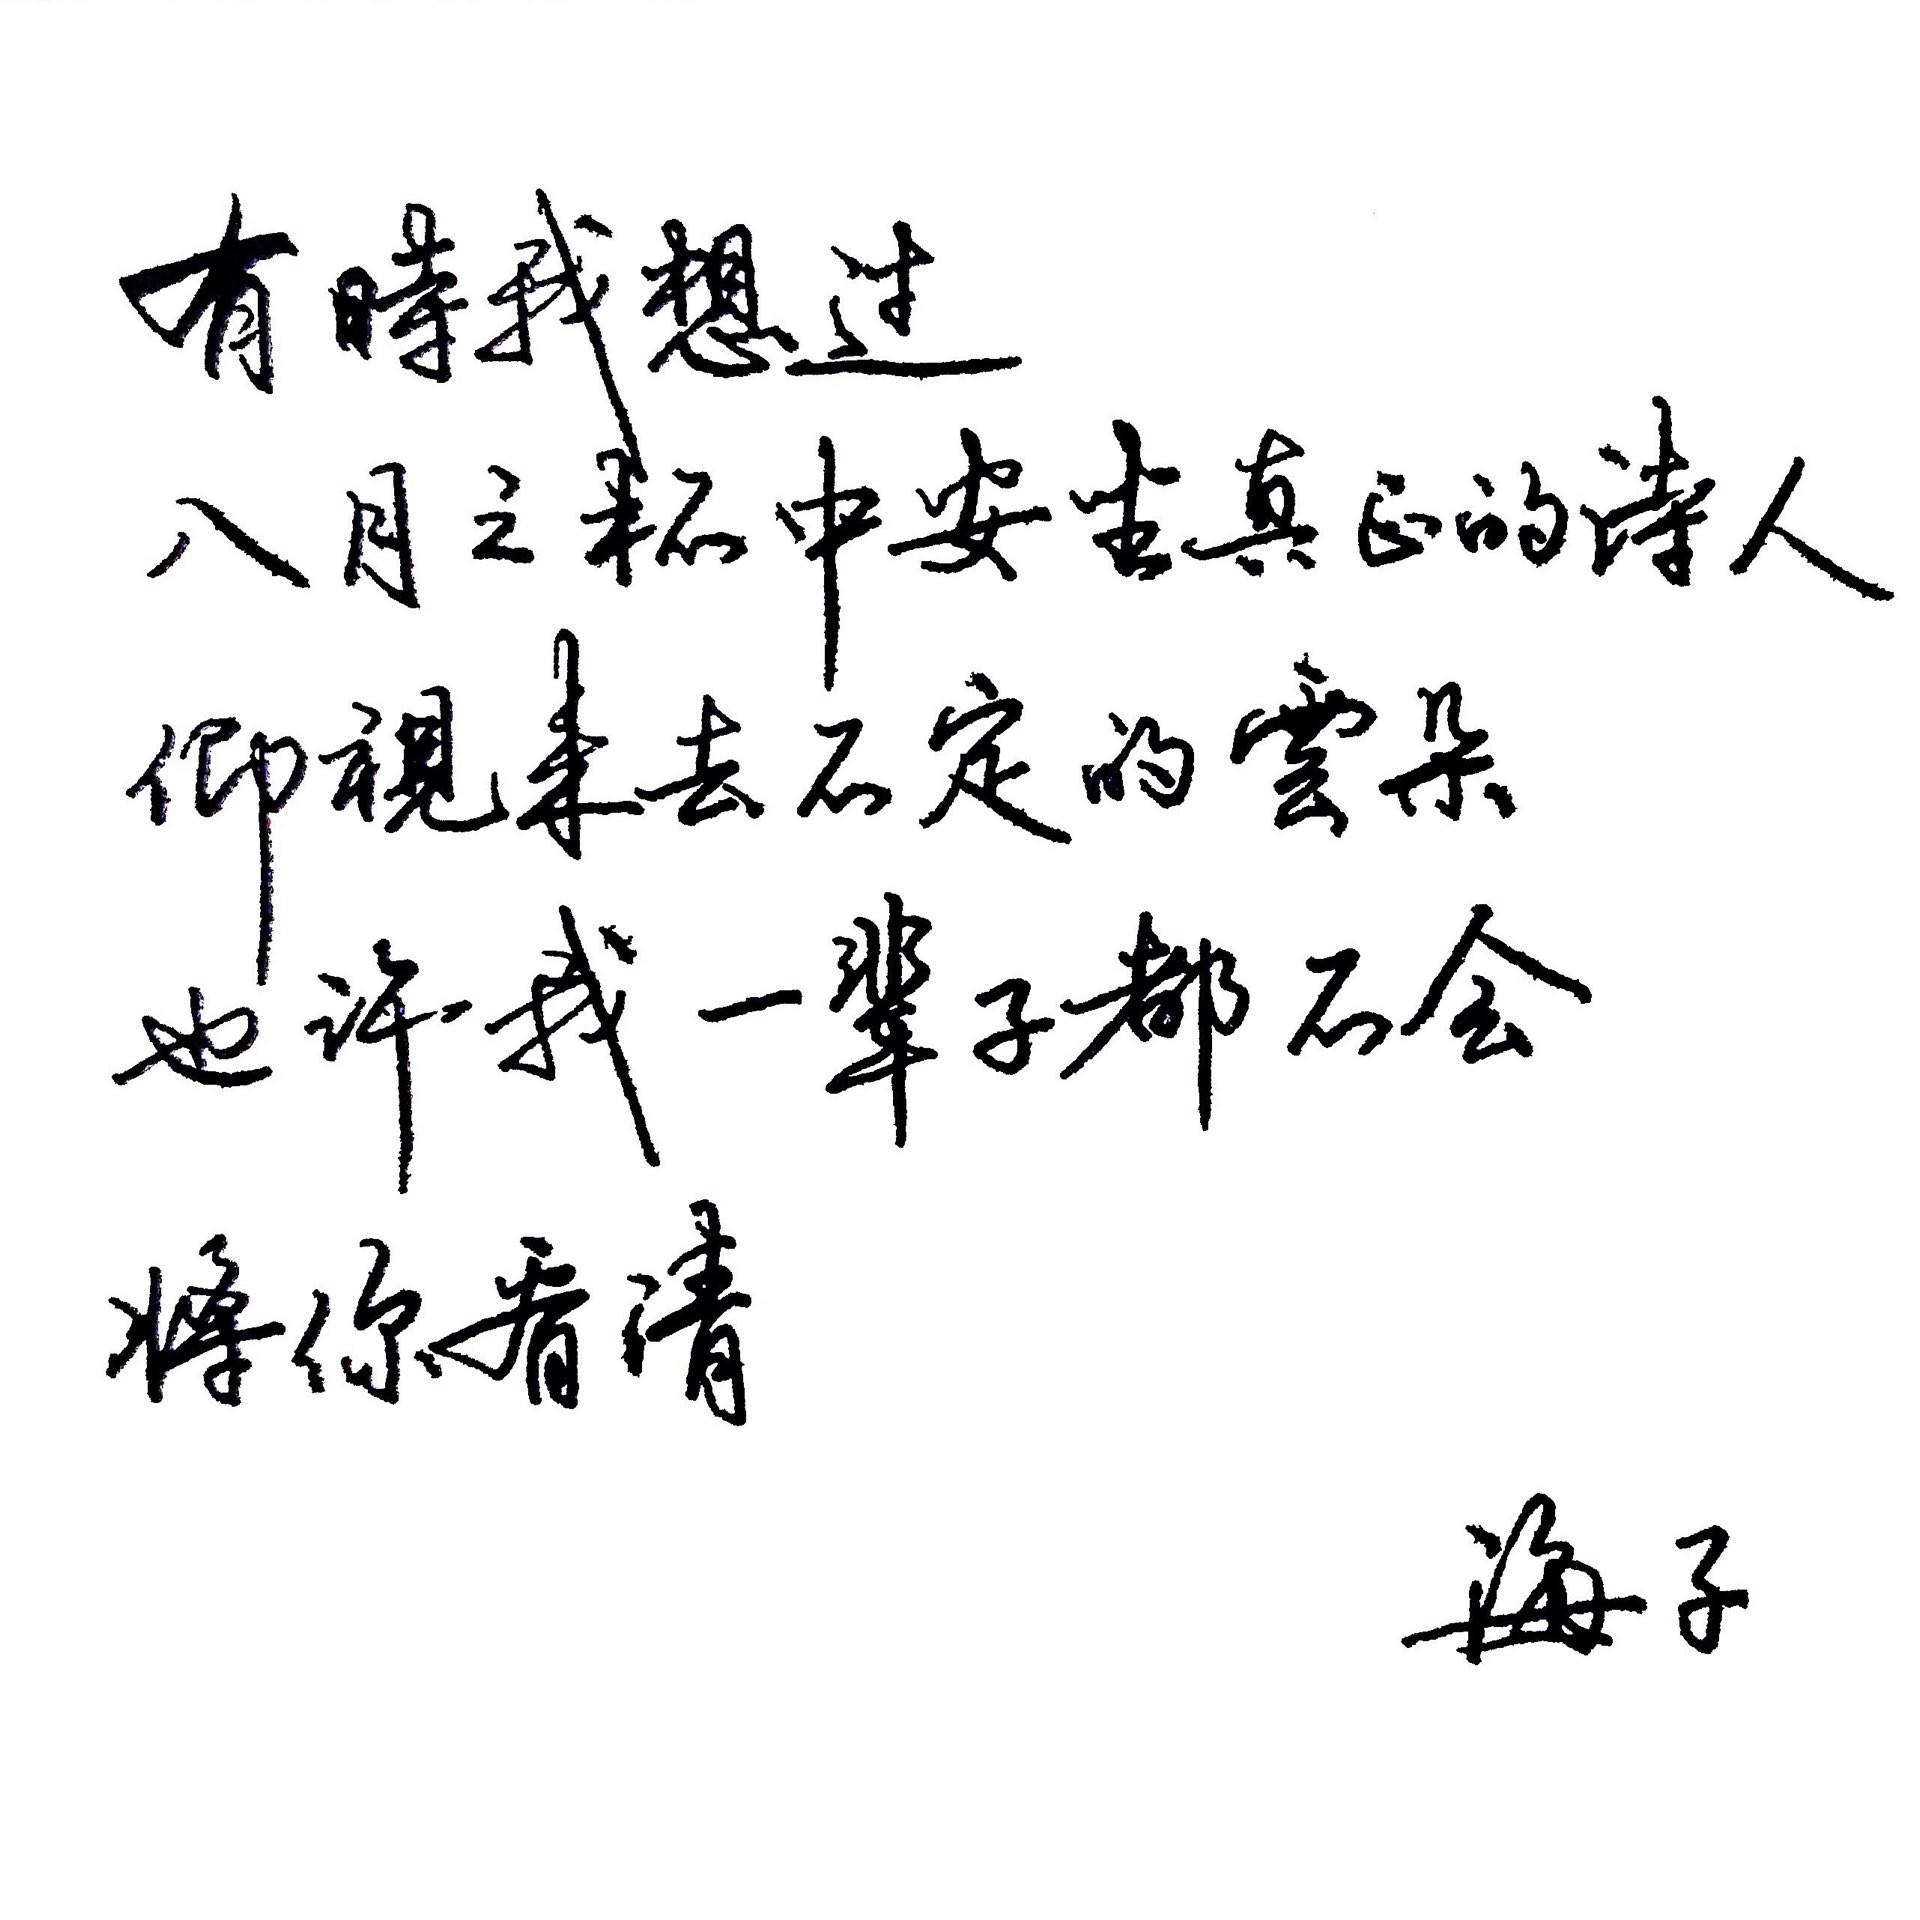 有時我想过
八月之杯中安坐真正的诗人
仰視来去不定的雲朵
也许我一辈子都不会
將你看清
海子